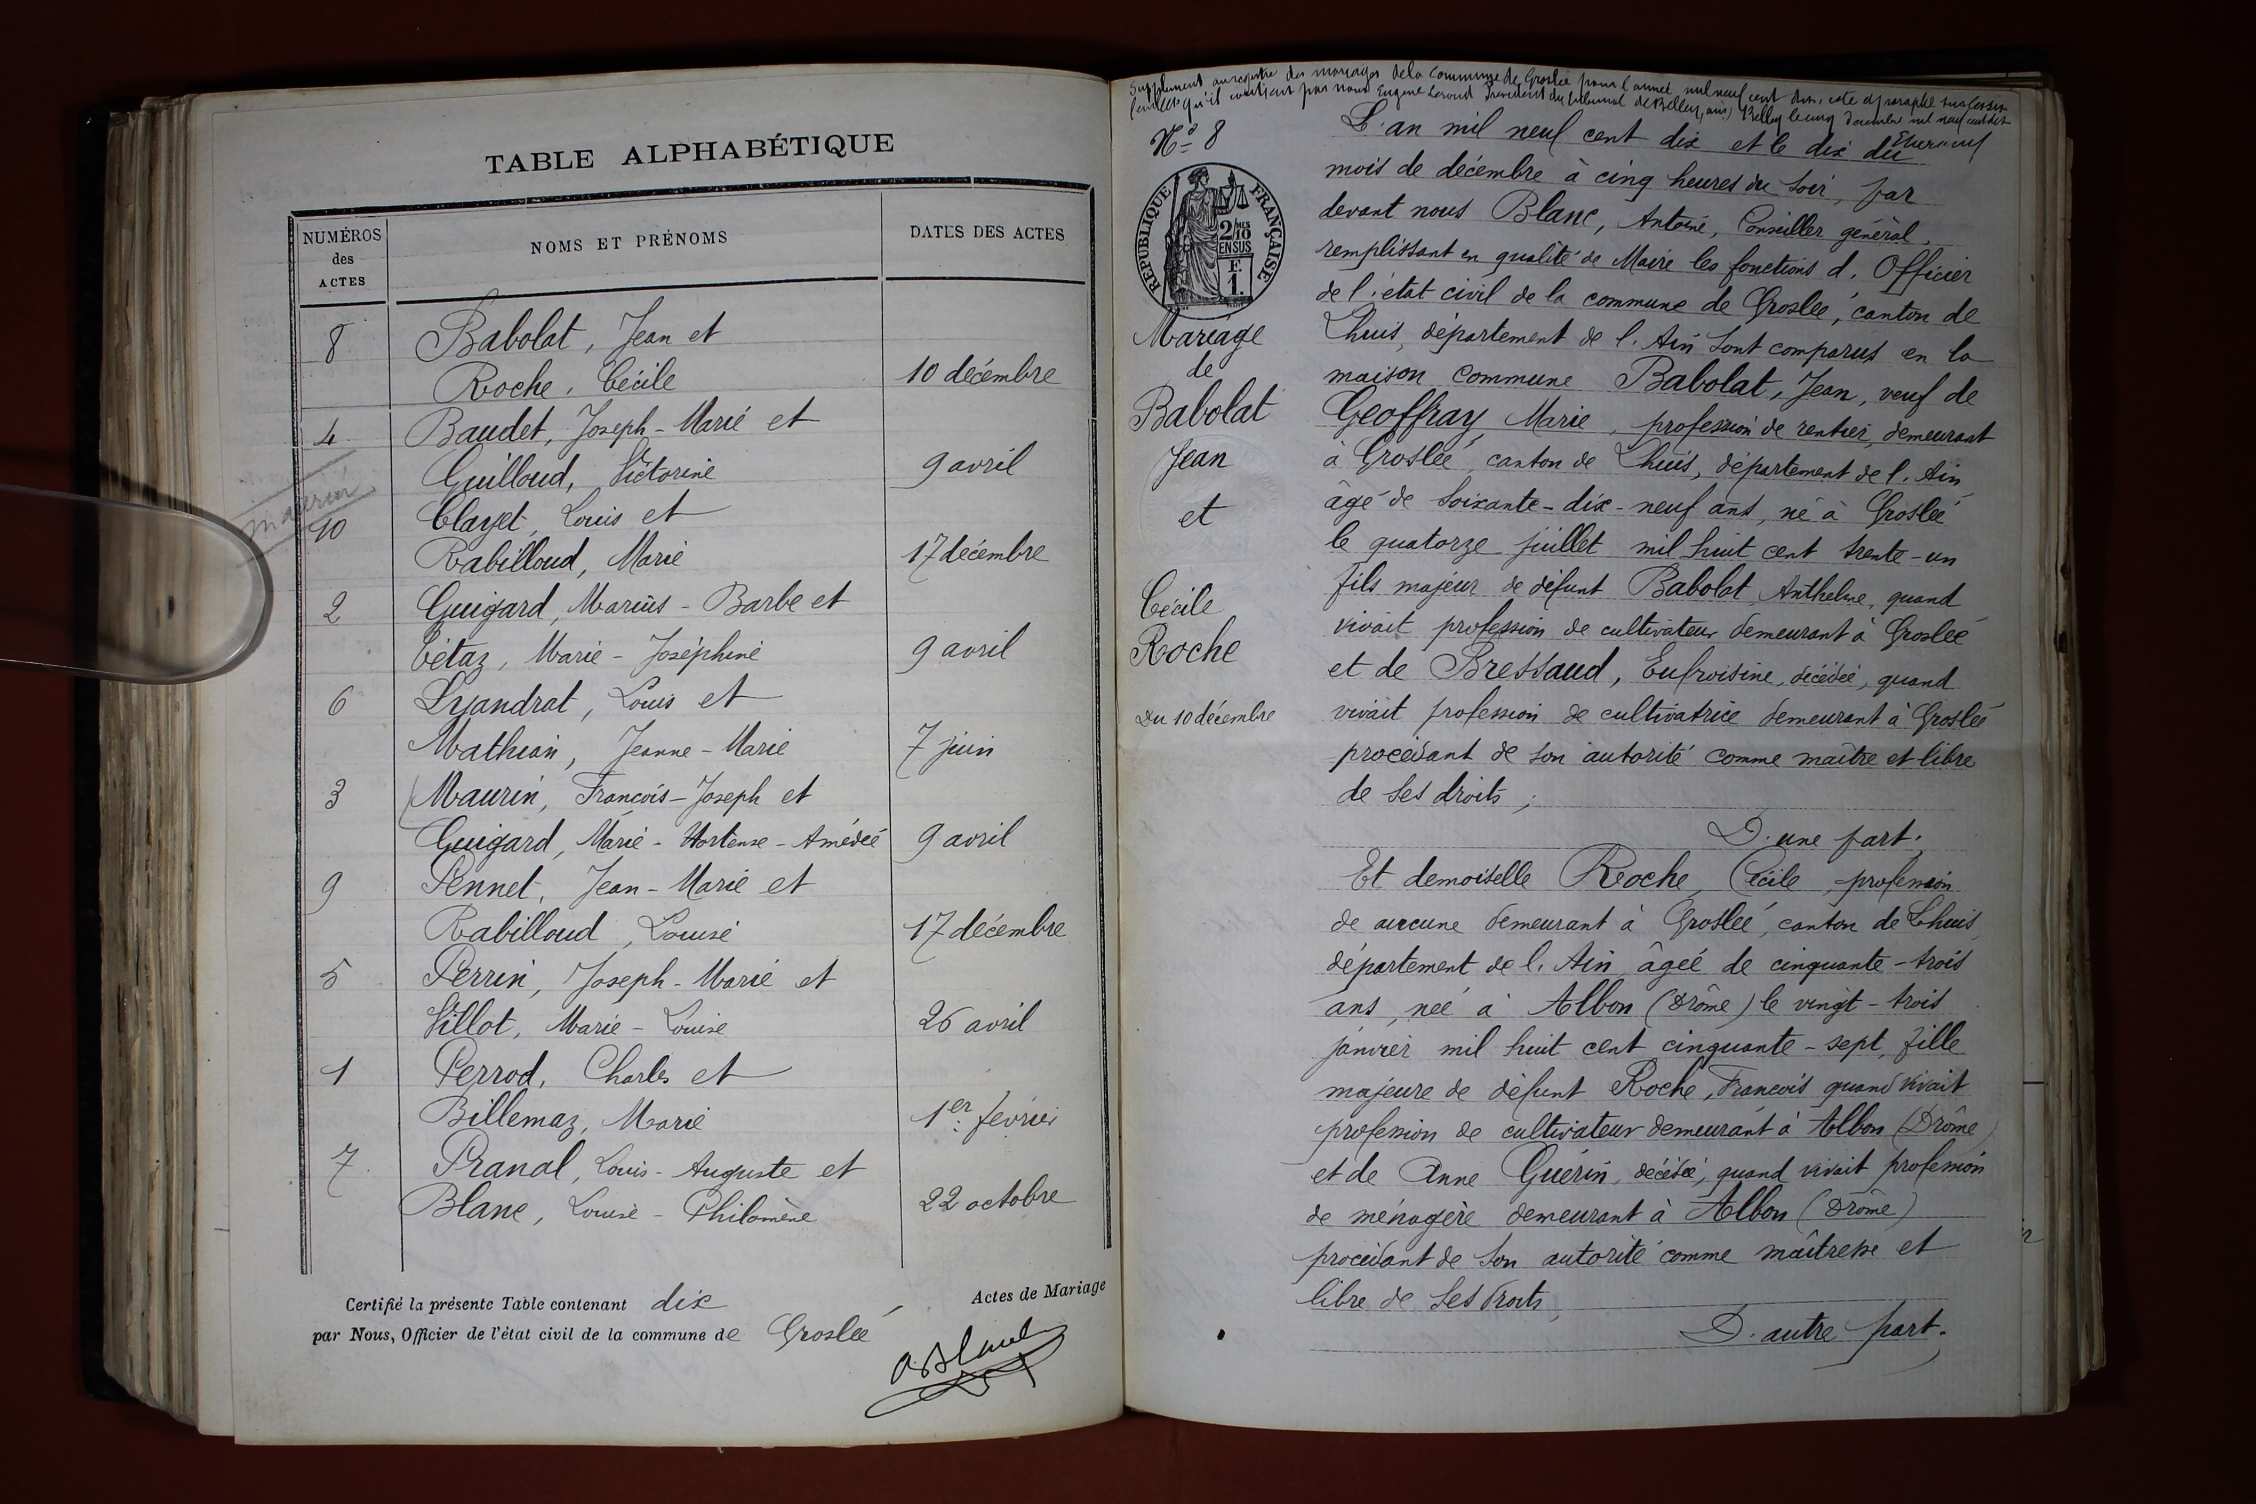 TABLE ALPHABÉTIQUE
NUMÉROS
des
ACTES
NOMS ET PRÉNOMS
DATES DES ACTES
8 Babolat, Jean et
Roche, Cécile 10 décembre
4 Baudet, Joseph-Marie et
Guilloud, Victorine 9 avril
10 Clayet, Louis et
Rabilloud, Marie 17 décembre
2 Guigard, Marius-Barbe et
Cétaz, Marie-Joséphine 9 avril
6 Lyandrat, Louis et
Mathian, Jeanne-Marie 7 juin
3 Maurin, François-Joseph et
Guigard, Marie-Hortense-Amédée 9 avril
9 Pennet, Jean-Marie et
Rabilloud, Louise 17 décembre
5 Perrin, Joseph-Marie et
Villot, Marie-Louise 26 avril
1 Perrod, Charles et
Billemaz, Marie 1er février
7 Pranal, Louis-Auguste et
Blanc, Louise-Philomène 22 octobre
Certifié la présente Table contenant dix Actes de Mariage
par Nous, Officier de l'état civil de la commune de Groslée
A. Blanc
Supplément au registre des mariages de la commune de Groslée pour l'année mil neuf cent dix, coté et paraphé sur
feuillets qu'il contient par nous Eugène Président du tribunal de Belley, (Ain) Belley le cinq décembre mil neuf cent dix
No 8
RÉPUBLIQUE FRANÇAISE
2/10 MES
EN SUS
F.
1.
Mariage
de
Babolat
Jean
et
Cécile
Roche
Du 10 décembre
L'an mil neuf cent dix et le dix du
mois de décembre à cinq heures du soir, par
devant nous Blanc, Antoine, Conseiller général,
remplissant en qualité de Maire les fonctions d'Officier
de l'état civil de la commune de Groslée, canton de
Lhuis, département de l'Ain sont comparus en la
maison commune Babolat, Jean, veuf de
Geoffray Marie, profession de rentier, demeurant
à Groslée, canton de Lhuis, département de l'Ain
âgé de soixante-dix-neuf ans, né à Groslée
le quatorze juillet mil huit cent trente-un
fils majeur de défunt Babolat, Anthelme, quand
vivait profession de cultivateur demeurant à Groslée
et de Bressaud, Eufroisine, décédée, quand
vivait profession de cultivatrice demeurant à Groslée
procédant de son autorité comme maître et libre
de ses droits;
D'une part.
Et demoiselle Roche, Cécile, profession
de aucune demeurant à Groslée, canton de Lhuis,
département de l'Ain âgée de cinquante-trois
ans, née à Albon (Drôme) le vingt-trois
janvier mil huit cent cinquante-sept, fille
majeure de défunt Roche, François quand vivait
profession de cultivateur demeurant à Albon (Drôme)
et de Anne Guérin, décédée, quand vivait profession
de ménagère demeurant à Albon (Drôme)
procédant de son autorité comme maîtresse et
libre de ses droits,
D'autre part.